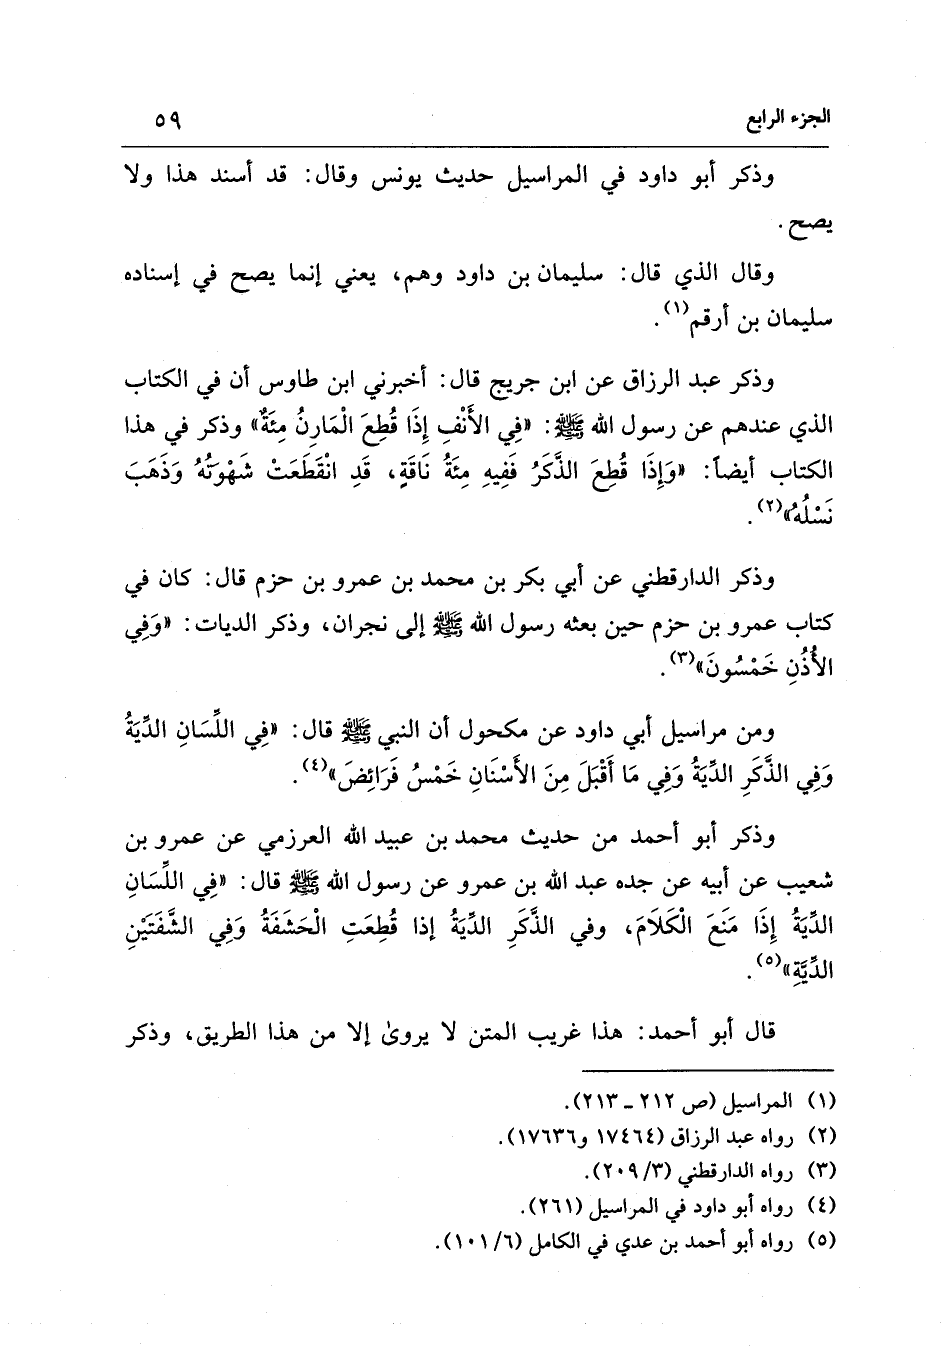 الجزء الرابع ٥٩
وذكر أبو داود في المراسيل حديث يونس وقال: قد أسند هذا ولا
يصح.
وقال الذي قال: سليمان بن داود وهم، يعني إنما يصح في إسناده
سليمان بن أرقم(١).
وذكر عبد الرزاق عن ابن جريج قال: أخبرني ابن طاوس أن في الكتاب
الذي عندهم عن رسول الله ﷺ: «فِي الأَنْفِ إِذَا قُطِعَ الْمَارِنُ مِئَةٌ» وذكر في هذا
الكتاب أيضاً: «وَإِذَا قُطِعَ الذَّكَرُ فَفِيهِ مِئَةُ نَاقَةٍ، قَدِ انْقَطَعَتْ شَهْوَتُهُ وَذَهَبَ
نَسْلُهُ»(٢).
وذكر الدارقطني عن أبي بكر بن محمد بن عمرو بن حزم قال: كان في
كتاب عمرو بن حزم حين بعثه رسول الله ﷺ إلى نجران، وذكر الديات: «وَفِي
الأُذُنِ خَمْسُونَ»(٣).
ومن مراسيل أبي داود عن مكحول أن النبي ﷺ قال: «فِي اللِّسَانِ الدِّيَةُ
وَفِي الذَّكَرِ الدِّيَةُ وَفِي مَا أَقْبَلَ مِنَ الأَسْنَانِ خَمْسُ فَرَائِضَ»(٤).
وذكر أبو أحمد من حديث محمد بن عبيد الله العرزمي عن عمرو بن
شعيب عن أبيه عن جده عبد الله بن عمرو عن رسول الله ﷺ قال: «فِي اللِّسَانِ
الدِّيَةُ إِذَا مَنَعَ الْكَلَامَ، وفي الذَّكَرِ الدِّيَةُ إذا قُطِعَتِ الْحَشَفَةُ وَفِي الشَّفَتَيْنِ
الدِّيَّةِ»(٥).
قال أبو أحمد: هذا غريب المتن لا يروىٰ إلا من هذا الطريق، وذكر
(١) المراسيل (ص ٢١٢ ـ ٢١٣).
(٢) رواه عبد الرزاق (١٧٤٦٤ و١٧٦٣٦).
(٣) رواه الدارقطني (٣/ ٢٠٩).
(٤) رواه أبو داود في المراسيل (٢٦١).
(٥) رواه أبو أحمد بن عدي في الكامل (٦/ ١٠١).